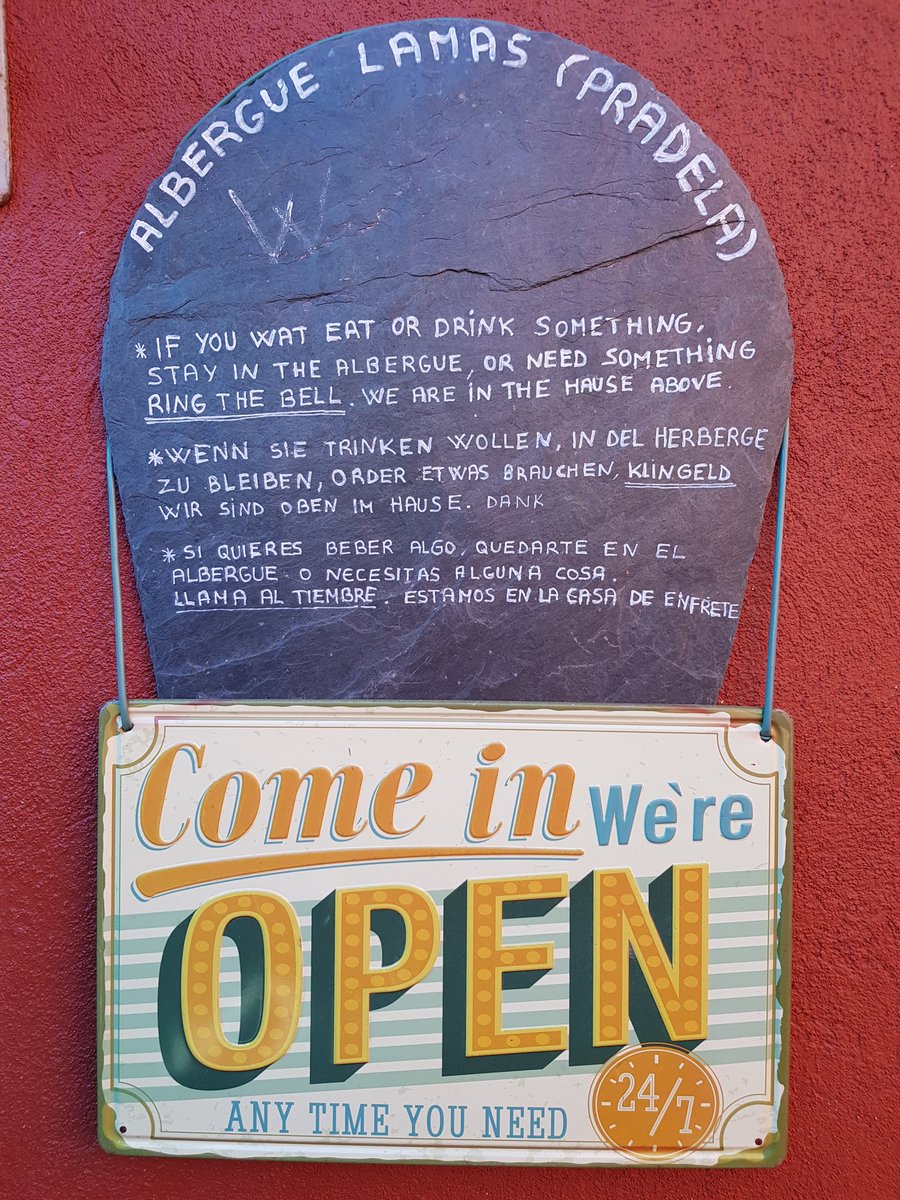 ALBERGUE LAMAS (PRADELA)
W
*IF YOU WAT EAT OR DRINK SOMETHING,
STAY IN THE ALBERGUE, OR NEED SOMETHING
RING THE BELL. WE ARE IN THE HAUSE ABOVE.
*WENN SIE TRINKEN WOLLEN, IN DEL HERBERGE
ZU BLEIBEN, ORDER ETWAS BRAUCHEN, KLINGELD
WIR SIND OBEN IM HAUSE. DANK
*SI QUIERES BEBER ALGO, QUEDARTE EN EL
ALBERGUE O NECESITAS ALGUNA COSA.
LLAMA AL TIEMBRE. ESTAMOS EN LA CASA DE ENFRETE
Come in We`re
OPEN
ANY TIME YOU NEED
24/7